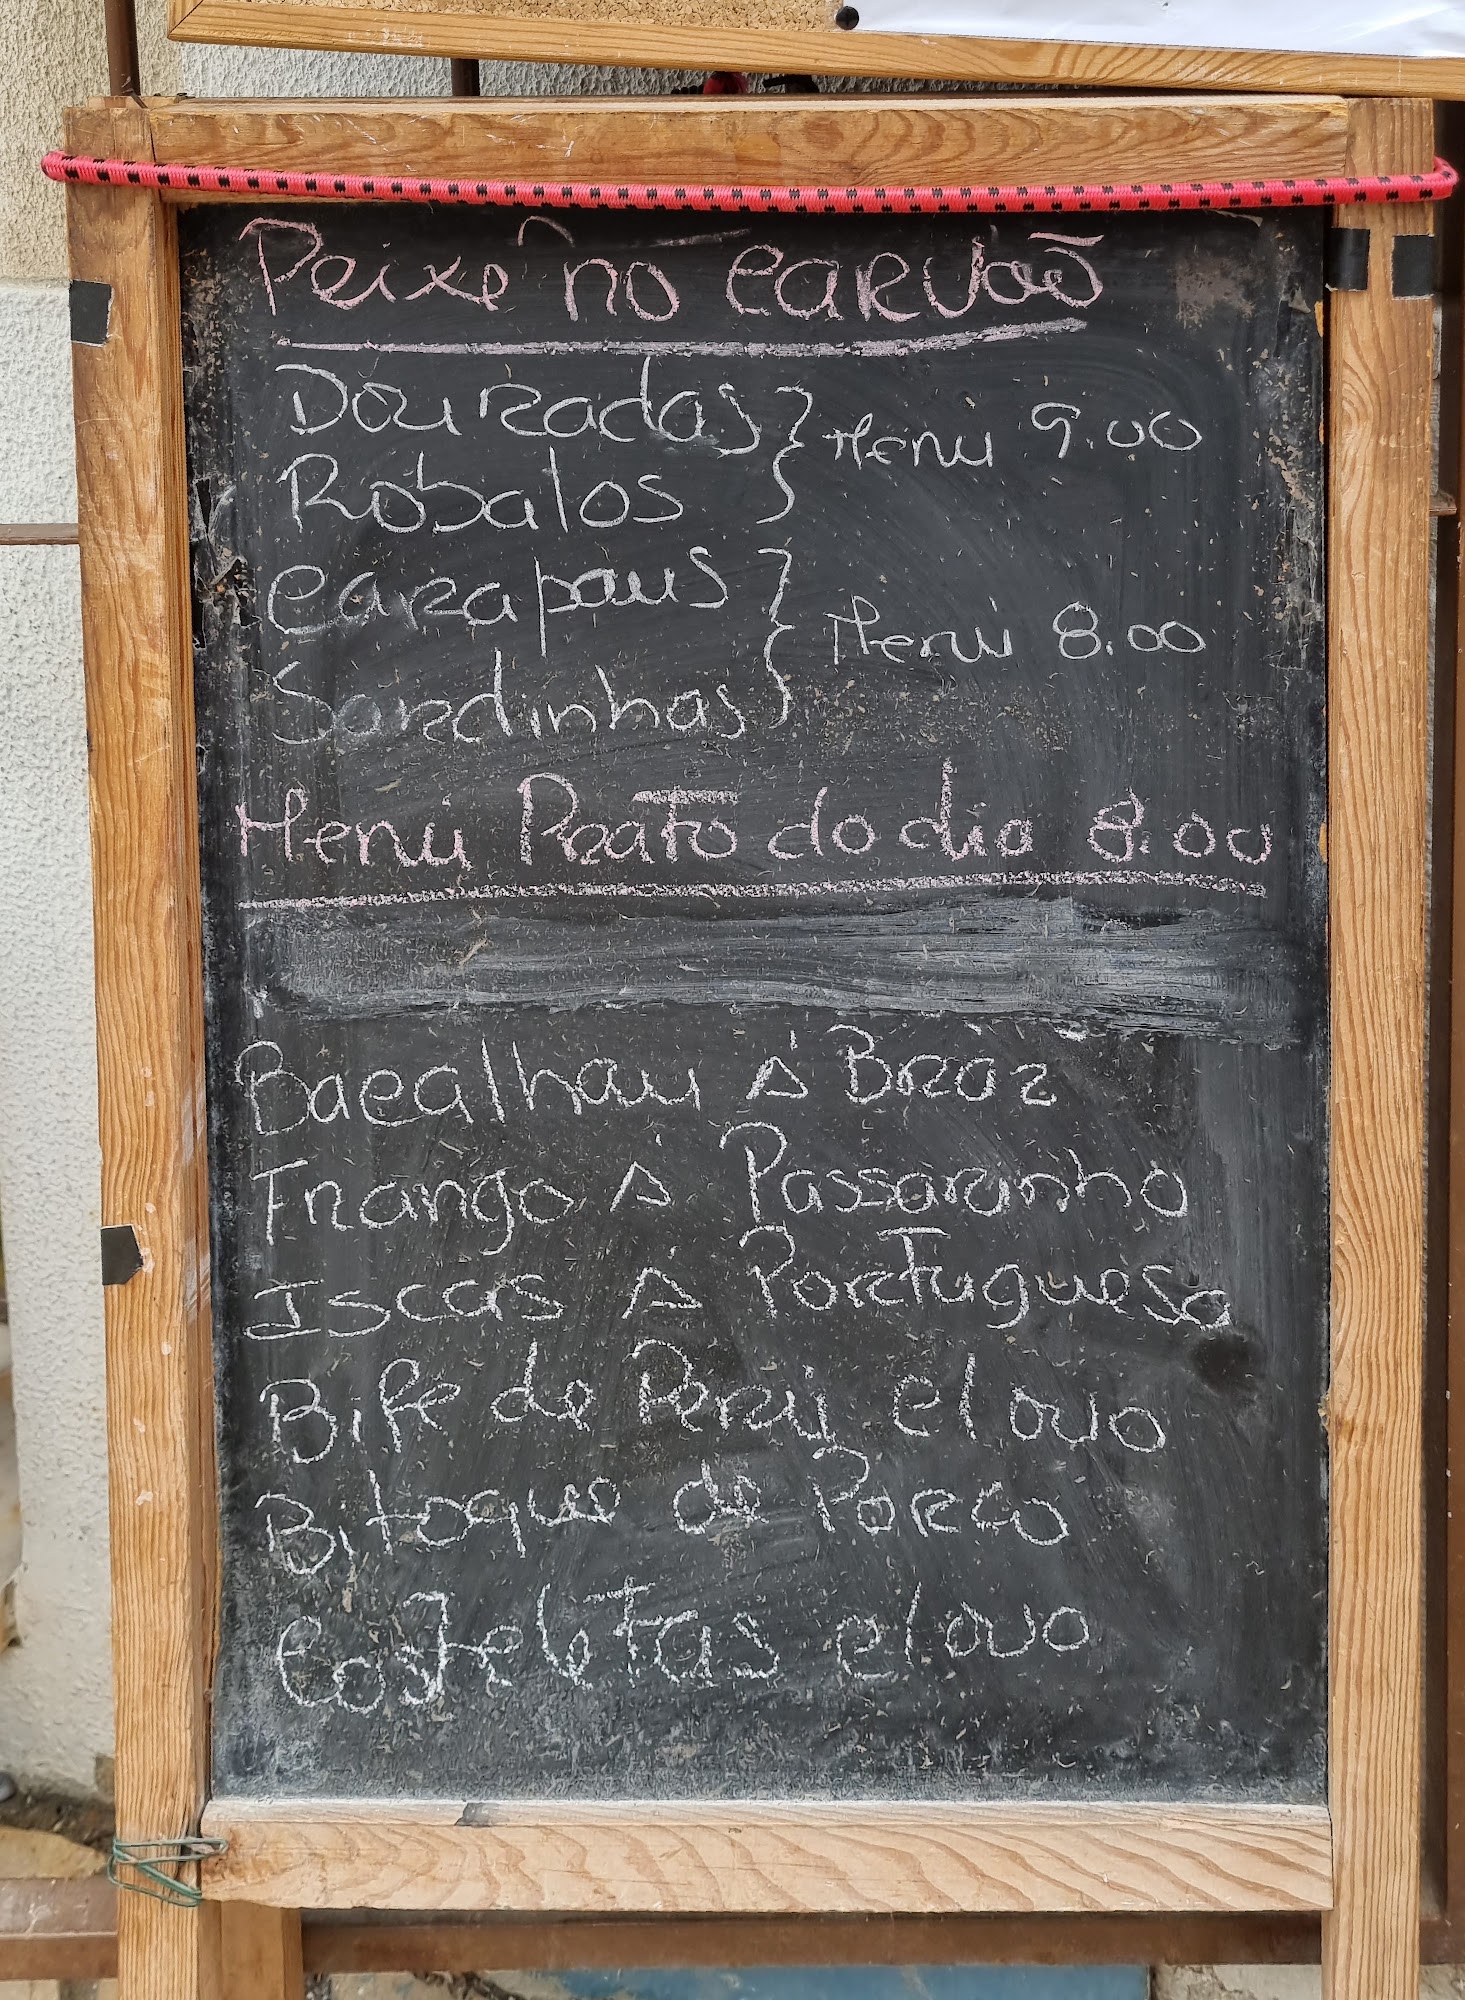 Peixe no carvão
Douradas
Robalos
Menu 9.00
Carapaus
Sardinhas
Menu 8.00
Menu Prato do dia 8.00
Bacalhau à Braz
Frango à Passarinho
Iscas à Portuguesa
Bife de Peru c/ovo
Bitoque de Porco
Costeletas c/ovo